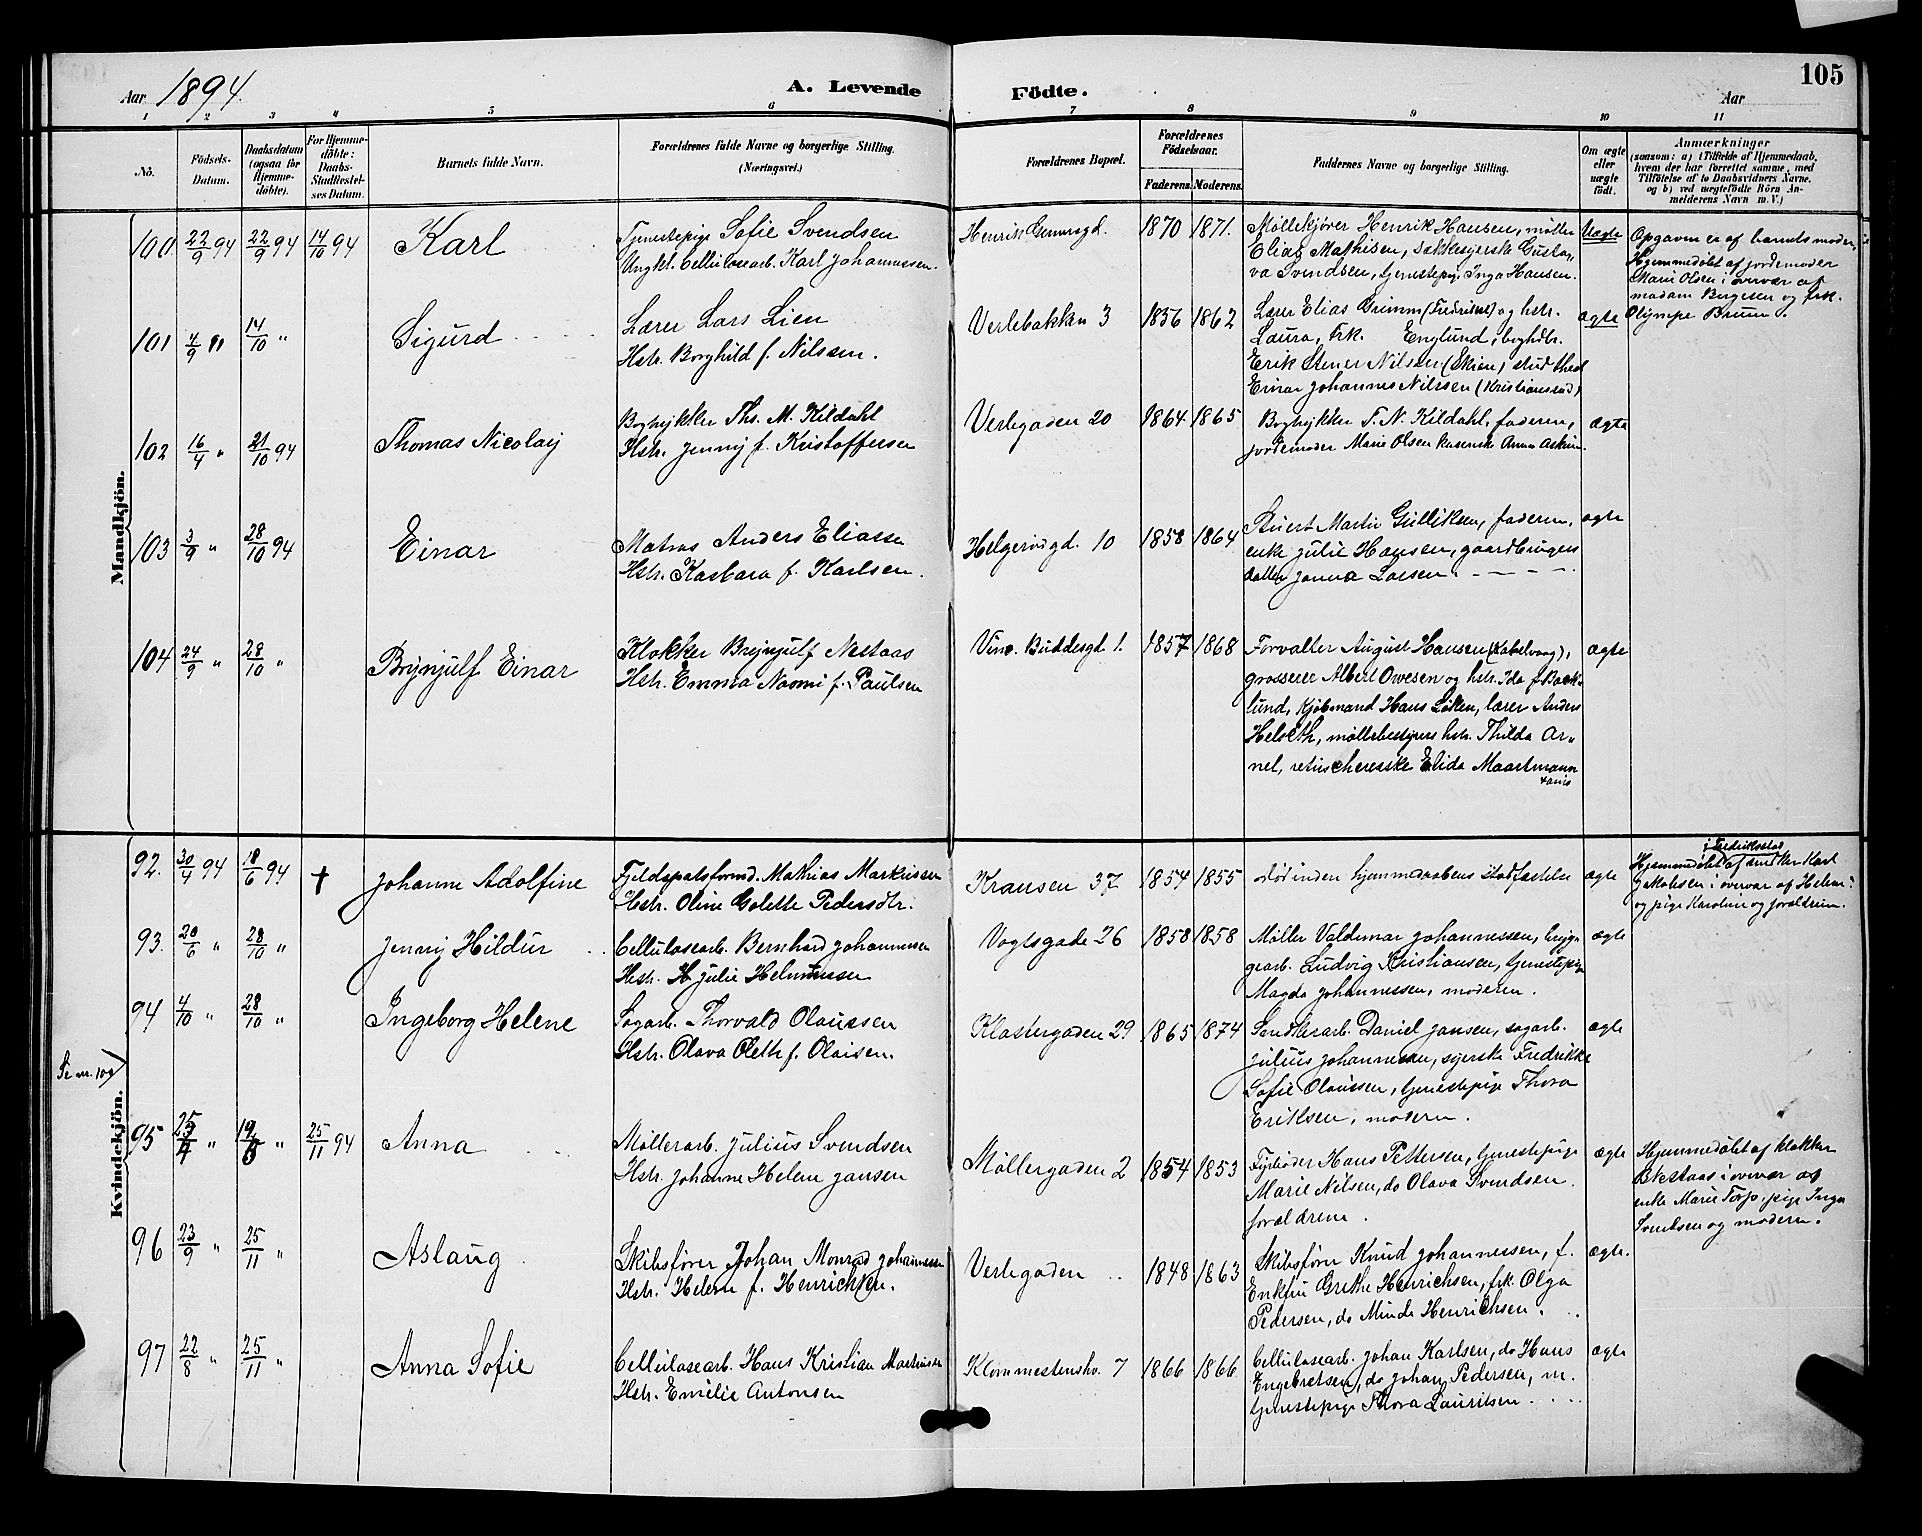 Aar 1894.
A. Levende Födte.
105
Aar
1 2 3 4 5 6 7 8 9 10 11
No.
Födsels-Datum.
Daabsdatum (ogsaa för Hjemme-döbte).
For Hjemme-döbte: Daabs-Stadfæstel-ses Datum.
Barnets fulde Navn.
Forældrenes fulde Navne og borgerlige Stilling. (Næringsvei.)
Forældrenes Bopæl.
Forældrenes Födselsaar.
Faderens. Moderens.
Faddernes Navne og borgerlige Stilling.
Om ægte eller uægte födt.
Anmærkninger
(saasom: a) i Tilfælde af Hjemmedaab, hvem der har forrettet samme, med Tilföielse af to Daabsvidners Navne, og b) ved uægtefödte Börn An-melderens Navn m. V.)
Mandkjön.
100. 22/9 94 22/9 94 14/10 94 Karl
Tjenestepige Sofie Svendsen
Ungkl. Cellulosearb. Karl Johannessen.
1870 1871.
Møllekjører Henrik Hansen, møller
Elias Mathisen, sækkesyerske Gusta-
va Svendsen, tjenestepig. Inga Hansen.
Uægte
Opgaven er af barnets moder,
Hjemmedøbt af jordemoder
Marie Olsen i overvær af
madam Børgesen og frk.
Olympe Bruun.
101 4/9 " 14/10 " Sigurd
Lærer Lars Lien
Hstr. Borghild f. Nilssen.
Verlebakken 3 1856 1862
Lærer Elias Grimm (Fredrikst) og hstr.
Laura, Frk. Englund, boghdlr.
Erik Stener Nilssen (Skien) stud theol
Einar Johannes Nilssen (Kristianssad)
ægte
102 16/4 " 21/10 94 Thomas Nicolay
Bogtrykker Ths. M. Kildahl
Hstr. Jenny f. Kristoffersen
Verlegaden 20 1864 1865
Bogtrykker T. N. Kildahl, faderen,
jordemoder Marie Olsen kaserske Anna
ægte
103 3/9 " 28/10 94 Einar
Matros Anders Eliassen
Hstr. Karbara f. Karlsen.
10 1858 1864
Stuert Martin Gulliksen, faderen,
enke Julie Hansen, gaardbrugers
datter Janna Larsen.
ægte
104 24/9 " 28/10 " Brynjulf Einar
Klokker Brynjulf Nestaas
Hstr. Emma Naomi f. Paulsen
Vinc. Buddesgt 1. 1857 1868
Forvalter August Hansen (Kabelvaag),
grosserer Albert Owesen og hstr. Ida f. Back-
lund, Kjøbmand Hans Løken, lærer Anders
Helseth, møllebestyrers hstr. Thilda Ar-
nel, retoucheresske Elida Maartmann
ægte
Kvindekjön.
92. 30/4 94 18/6 94 † Johanne Adolfine
Feldspatsformd. Mathias Markussen
Hstr. Oline Golette Pedersdtr.
Kransen 37 1854 1855
død inden hjemmedaabens stadfæstelse
ægte
i Fredriksstad
Hjemmedøbt af snedker Karl
Jakobsen i overvær af Helene
og pige Karoline og forældrene.
93. 20/6 " 28/10 " Jenny Hildur
Cellulosearb. Bernhard Johannessen
Hstr. Julie Helmussen
Vogtsgade 26 1858 1858
Møller Valdemar Johannessen, bryg-
gearb. Ludvig Kristiansen, tjenestepige
Magda Johannessen, moderen.
ægte
94 4/10 " 28/10 " Ingeborg Helene
Sagarb. Thorvald Olaussen
Hstr. Olava Oleth f. Olaisen.
Klostergaden 29 1865 1874
Daniel Jansen, sagarb.
Julius Johannessen, syerske Fredrikke
Sofie Olaussen, tjenestepige Thora
Eriksen, moderen.
ægte
Se nr. 109
95 25/4 " 19/8 " 25/11 94 Anna
Møllerarb. Julius Svendsen
Hstr. Johanne Helene Jansen
Møllergaden 2 1854 1853
Fyrbøder Hans Pettersen, tjenestepige
Marie Nilsen, do Olava Svendsen
forældrene.
ægte
Hjemmedøbt af klokker
Nestaas i overvær af
enke Marie Torp, pige Inga
Svendsen og moderen.
96 23/9 " 25/11 " Aslaug
Skibsfører Johan Monrad Johannessen
Hstr. Helene f. Henrichsen.
Verlegaden 1848 1863
Skibsfører Knud Johannessen, f.
Enkfru Grethe Henrichsen, frk. Olga
Pedersen, do Minda Henrichsen.
ægte.
97 22/8 " 25/11 " Anna Sofie
Cellulosearb. Hans Kristian Martinsen
Hstr. Emilie Antonsen
7 1866 1866
Cellulosearb. Johan Karlsen, do Hans
Engebretsen, do Johan Pedersen, m.
tjenestepige Thora Lauritsen
ægte